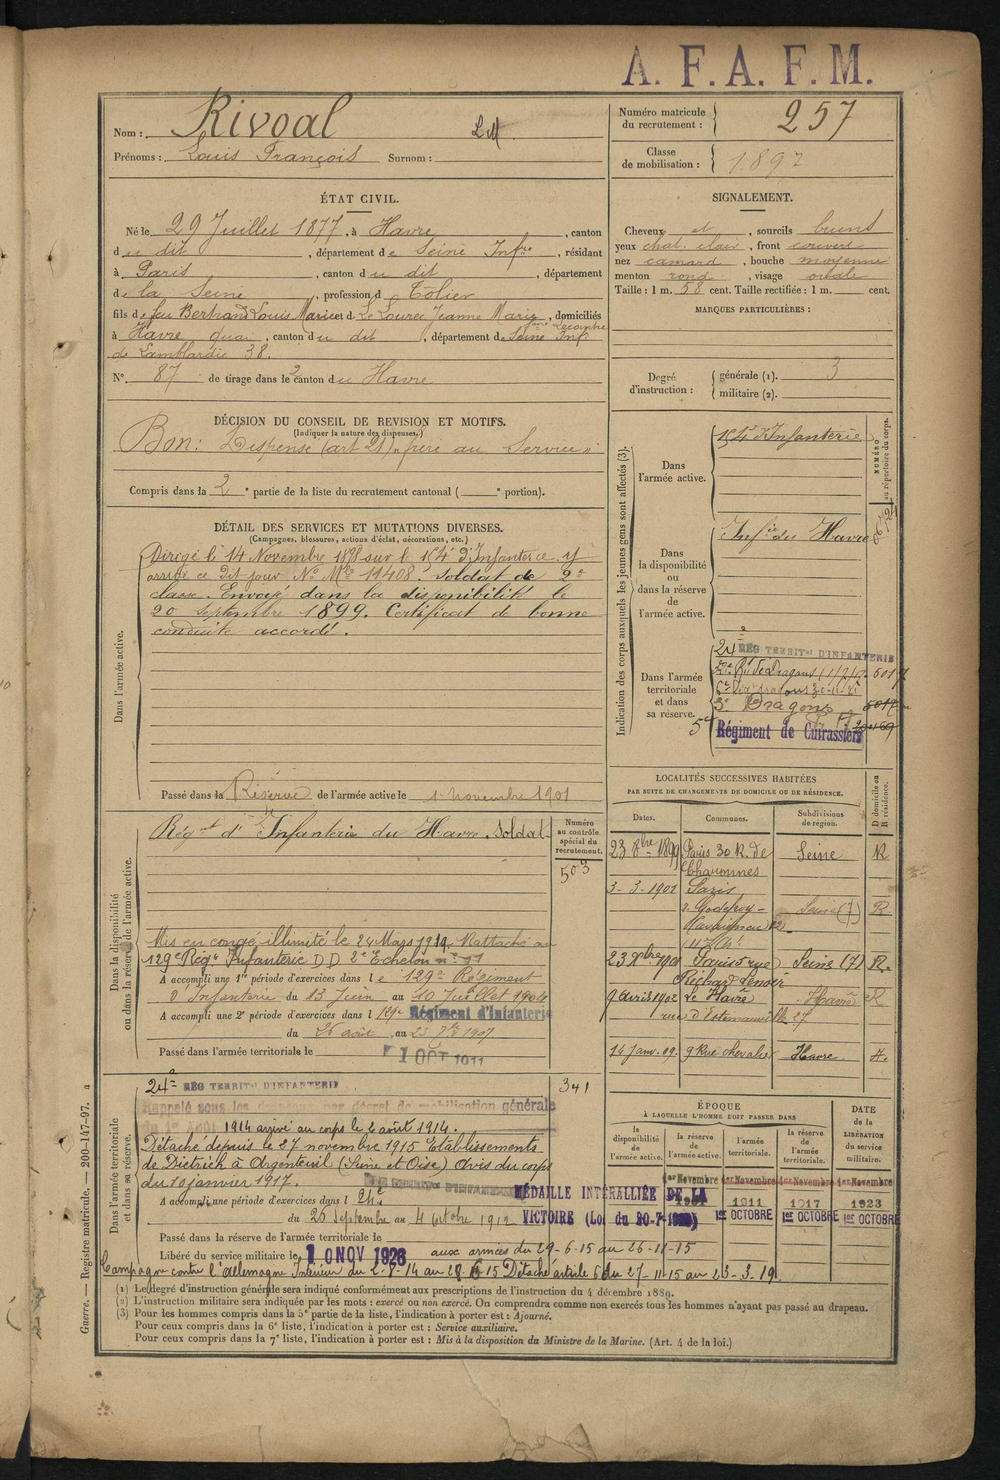 A. F. A. F. M.
Nom : Rivoal LM
Prénoms : Louis François Surnom :
Numéro matricule du recrutement : 257
Classe de mobilisation : 1897
ÉTAT CIVIL.
Né le 29 Juillet 1877, à Havre, canton
du dit, département de Seine Infre, résidant
à Paris, canton du dit, département
de la Seine, profession de Tôlier
fils de feu Bertrand Louis Marie et de Le Lourec Jeanne Marie, domiciliés
à Havre quai, canton du dit, département de Seine Infre
de Lamblardie 38.
N° 87 de tirage dans le 2 canton du Havre
SIGNALEMENT.
Cheveux et, sourcils bruns
yeux chat. clair, front couvert
nez camard, bouche moyenne
menton rond, visage ovale
Taille : 1 m. 58 cent. Taille rectifiée : 1 m. cent.
MARQUES PARTICULIÈRES :
Degré d'instruction : générale (1). 3
militaire (2).
DÉCISION DU CONSEIL DE REVISION ET MOTIFS.
(Indiquer la nature des dispenses.)
Bon : Dispensé (art 21) frère au Service
Compris dans la 2e partie de la liste du recrutement cantonal ( e portion).
DÉTAIL DES SERVICES ET MUTATIONS DIVERSES.
(Campagnes, blessures, actions d'éclat, décorations, etc.)
Dans l'armée active.
Dirigé le 14 Novembre 1898 sur le 154e d'Infanterie y
arrivé ce dit jour No Mle 11408. Soldat de 2e
classe. Envoyé dans la disponibilité le
20 septembre 1899. Certificat de bonne
conduite accordé.
Passé dans la Réserve de l'armée active le 1 novembre 1901
Indication des corps auxquels les jeunes gens sont affectés (3).
NUMÉRO au répertoire du corps.
Dans l'armée active.
154e d'Infanterie
Dans la disponibilité ou dans la réserve de l'armée active.
Infie du Havre
Dans l'armée territoriale et dans sa réserve.
24e RÉG TERRITal D'INFANTERIE
3e Dragons
5e Régiment de Cuirassiers
Dans la disponibilité ou dans la réserve de l'armée active.
Régnt d'Infanterie du Havre. Soldat
Numéro au contrôle spécial du recrutement.
503
Mis en congé illimité le 24 Mars 1919. Rattaché au
129e Régt Infanterie DD 2e Echelon n° 11
A accompli une 1re période d'exercices dans le 129e Régiment
d'Infanterie du 13 Juin au 10 Juillet 1904
A accompli une 2e période d'exercices dans le 129e Régiment d'Infanterie
du 26 août au 1907
Passé dans l'armée territoriale le 1 OCT 1911
LOCALITÉS SUCCESSIVES HABITÉES
PAR SUITE DE CHANGEMENTS DE DOMICILE OU DE RÉSIDENCE.
Dates. Communes. Subdivisions de région. D domicile ou R résidence.
23 8bre 1899 Paris 30 R. de Charonnes Seine R
3-3-1901 Paris R
1901 Paris 5 rue Richard Lenoir Seine (7) R.
9 Avril 1902 Le Havre Havre R
rue d'Estimauville 27
14 janv. 09. 9 Rue chevalier Havre
Dans l'armée territoriale et dans sa réserve.
24e RÉG TERRITal D'INFANTERIE 341
Rappelé sous les par décret de mobilisation générale
du 1er Août 1914 arrivé au corps le 2 août 1914.
Détaché depuis le 27 novembre 1915 Etablissements
de Dietrich à Argenteuil (Seine et Oise) Avis du corps
du 10 janvier 1917.
A accompli une période d'exercices dans le 24e
du 26 septembre au 4 octobre 1912
MÉDAILLE INTERALLIÉE DE LA
VICTOIRE (Loi du 20-7-1922)
Passé dans la réserve de l'armée territoriale le
Libéré du service militaire le 10 NOV 1926
aux armées du 29-6-15 au 26-11-15
Campagne contre l'Allemagne Intérieur du 2-8-14 au 28-6-15 Détaché article 6 du 27-11-15 au 23-3-19
ÉPOQUE
À LAQUELLE L'HOMME DOIT PASSER DANS
DATE DE LA LIBÉRATION DU SERVICE MILITAIRE.
la disponibilité de l'armée active. la réserve de l'armée active. l'armée territoriale. la réserve de l'armée territoriale.
1er Novembre 1er Novembre 1er Novembre 1er Novembre
1901 1911 1917 1923
1er OCTOBRE 1er OCTOBRE 1er OCTOBRE
(1) Le degré d'instruction générale sera indiqué conformément aux prescriptions de l'instruction du 4 décembre 1889.
(2) L'instruction militaire sera indiquée par les mots : exercé ou non exercé. On comprendra comme non exercés tous les hommes n'ayant pas passé au drapeau.
(3) Pour les hommes compris dans la 5e partie de la liste, l'indication à porter est : Ajourné.
Pour ceux compris dans la 6e liste, l'indication à porter est : Service auxiliaire.
Pour ceux compris dans la 7e liste, l'indication à porter est : Mis à la disposition du Ministre de la Marine. (Art. 4 de la loi.)
Guerre. — Registre matricule. — 200-147-97. a